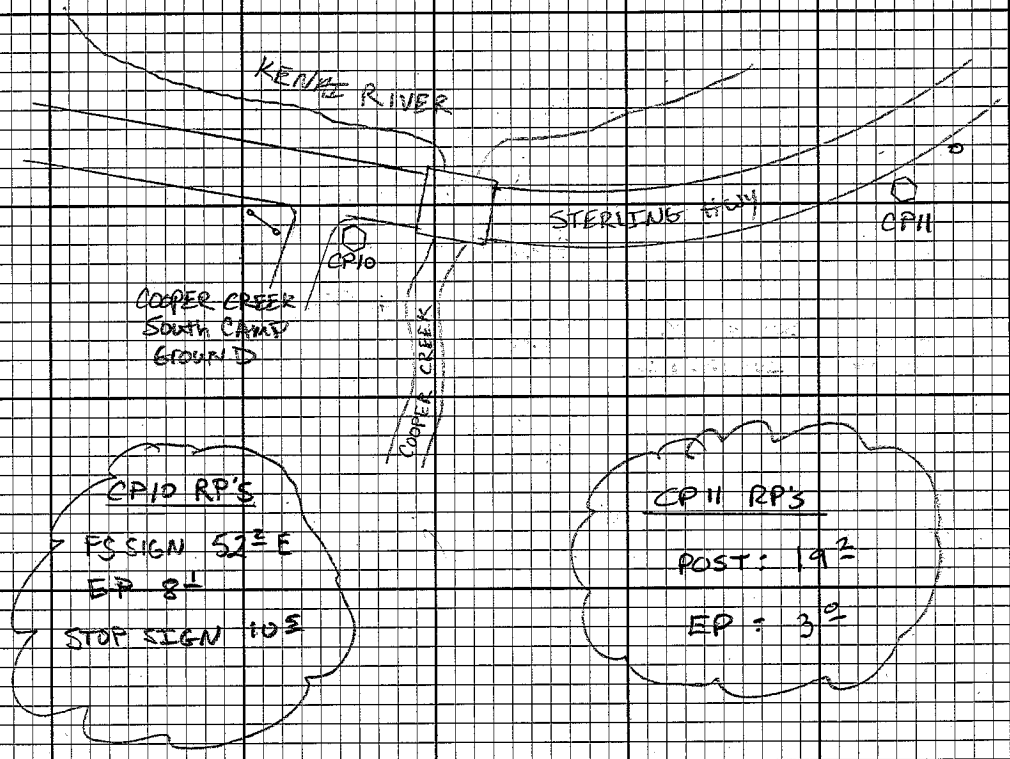 KENAI RIVER
STERLING HWY
CP11
CP10
COOPER CREEK
South CAMP
GROUND
COOPER CREEK
CP10 RP'S
FS SIGN 52² E
EP 8¹
STOP SIGN 10⁵
CP 11 RP's
POST: 19²
EP : 3⁰